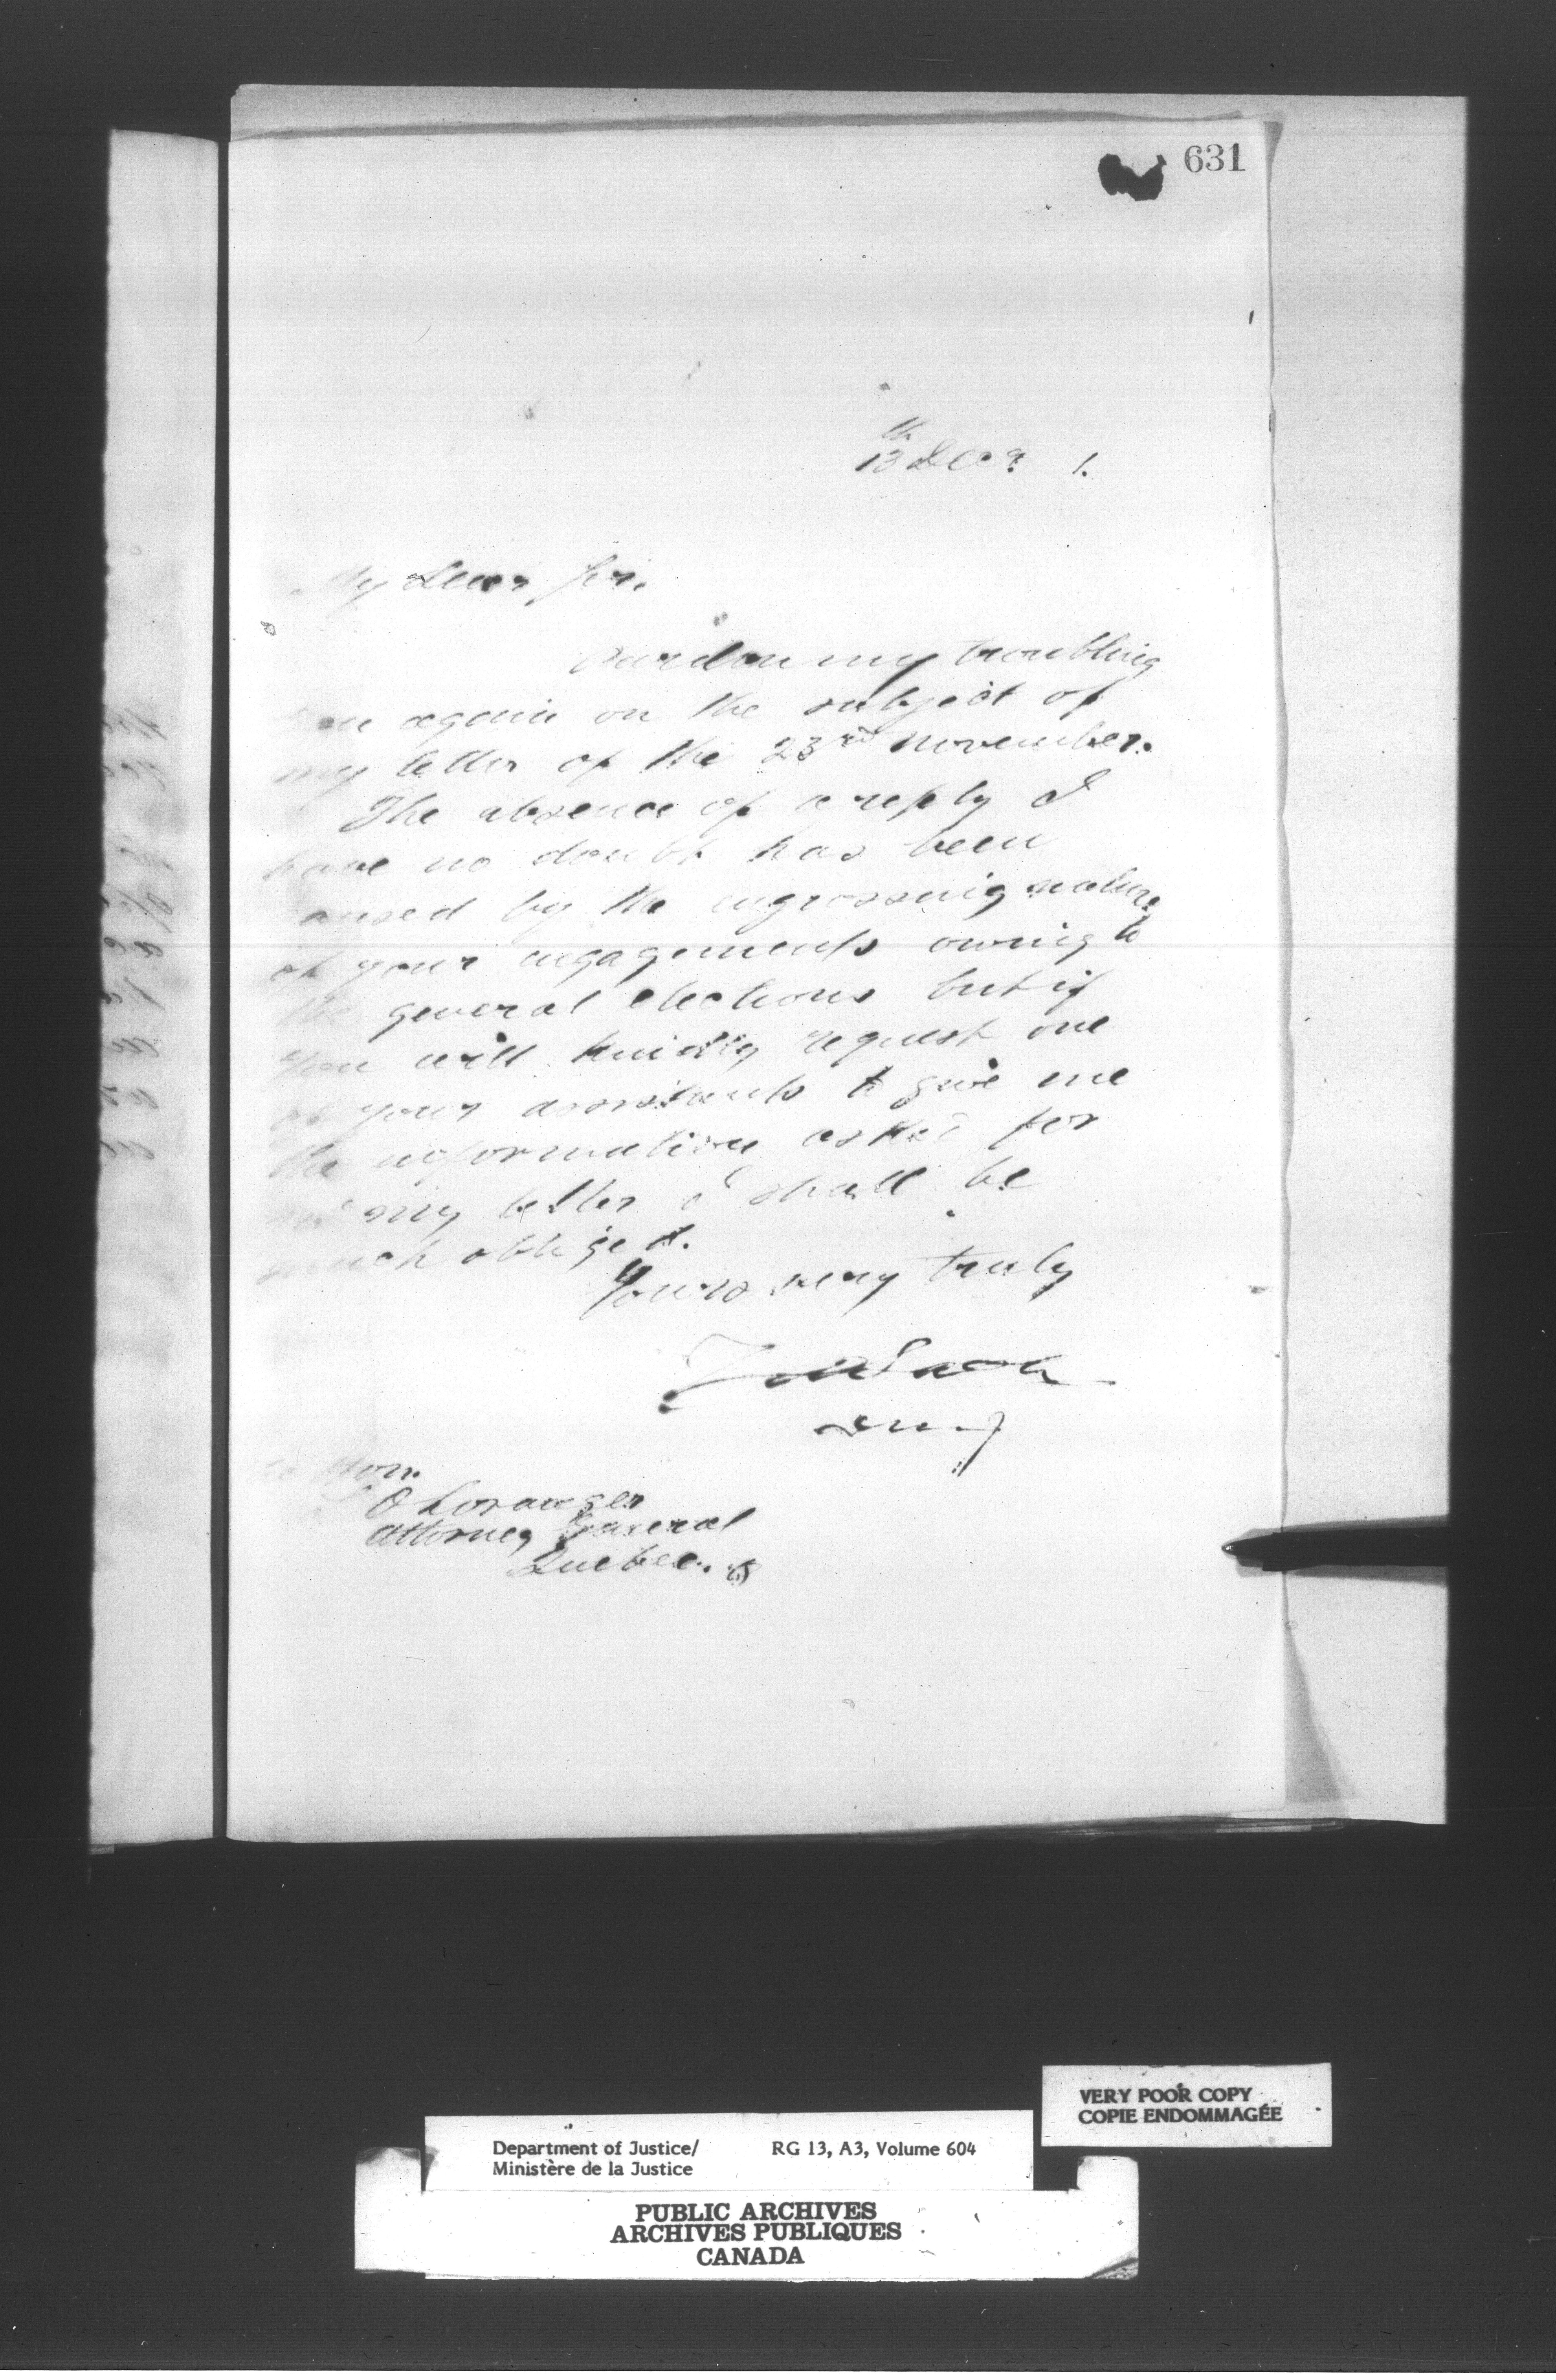 631
13th Decr 1.
My Dear Sir,
Pardon my troubling
you again on the subject of
my letter of the 23rd November.
The absence of a reply I
have no doubt has been
caused by the engrossing nature
of your engagements owing to
the general elections but if
you will kindly request one
of your assistants to give me
the information asked for
in my letter I shall be
much obliged.
Yours very truly
Hon.
O Loranger
Attorney General
Quebec.
VERY POOR COPY
COPIE ENDOMMAGÉE
Department of Justice/ RG 13, A3, Volume 604
Ministère de la Justice
PUBLIC ARCHIVES
ARCHIVES PUBLIQUES
CANADA